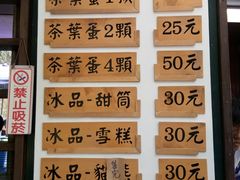 茶葉蛋2顆 25元
茶葉蛋4顆 50元
冰品-甜筒 30元
冰品-雪糕 30元
冰品- 30元
禁止吸菸